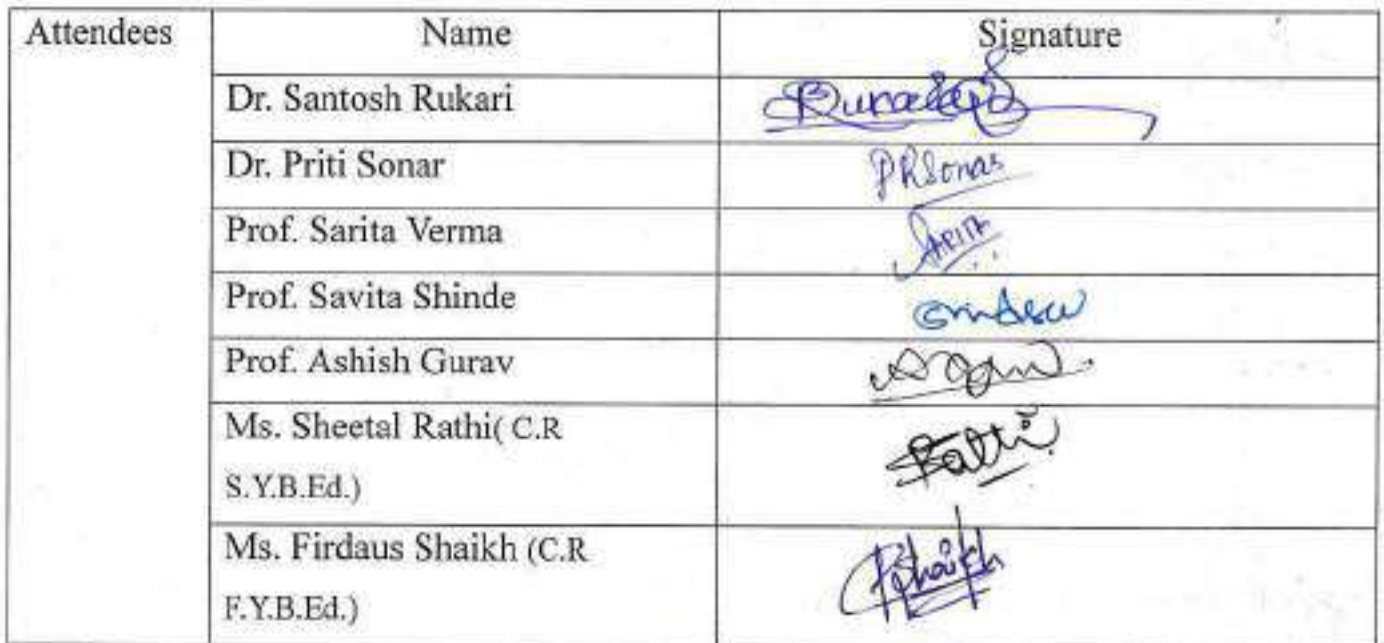 Attendees Name Signature
Dr. Santosh Rukari
Dr. Priti Sonar PRSonar
Prof. Sarita Verma SARITA
Prof. Savita Shinde
Prof. Ashish Gurav
Ms. Sheetal Rathi( C.R
S.Y.B.Ed.) Rathi
Ms. Firdaus Shaikh (C.R
F.Y.B.Ed.) Shaikh